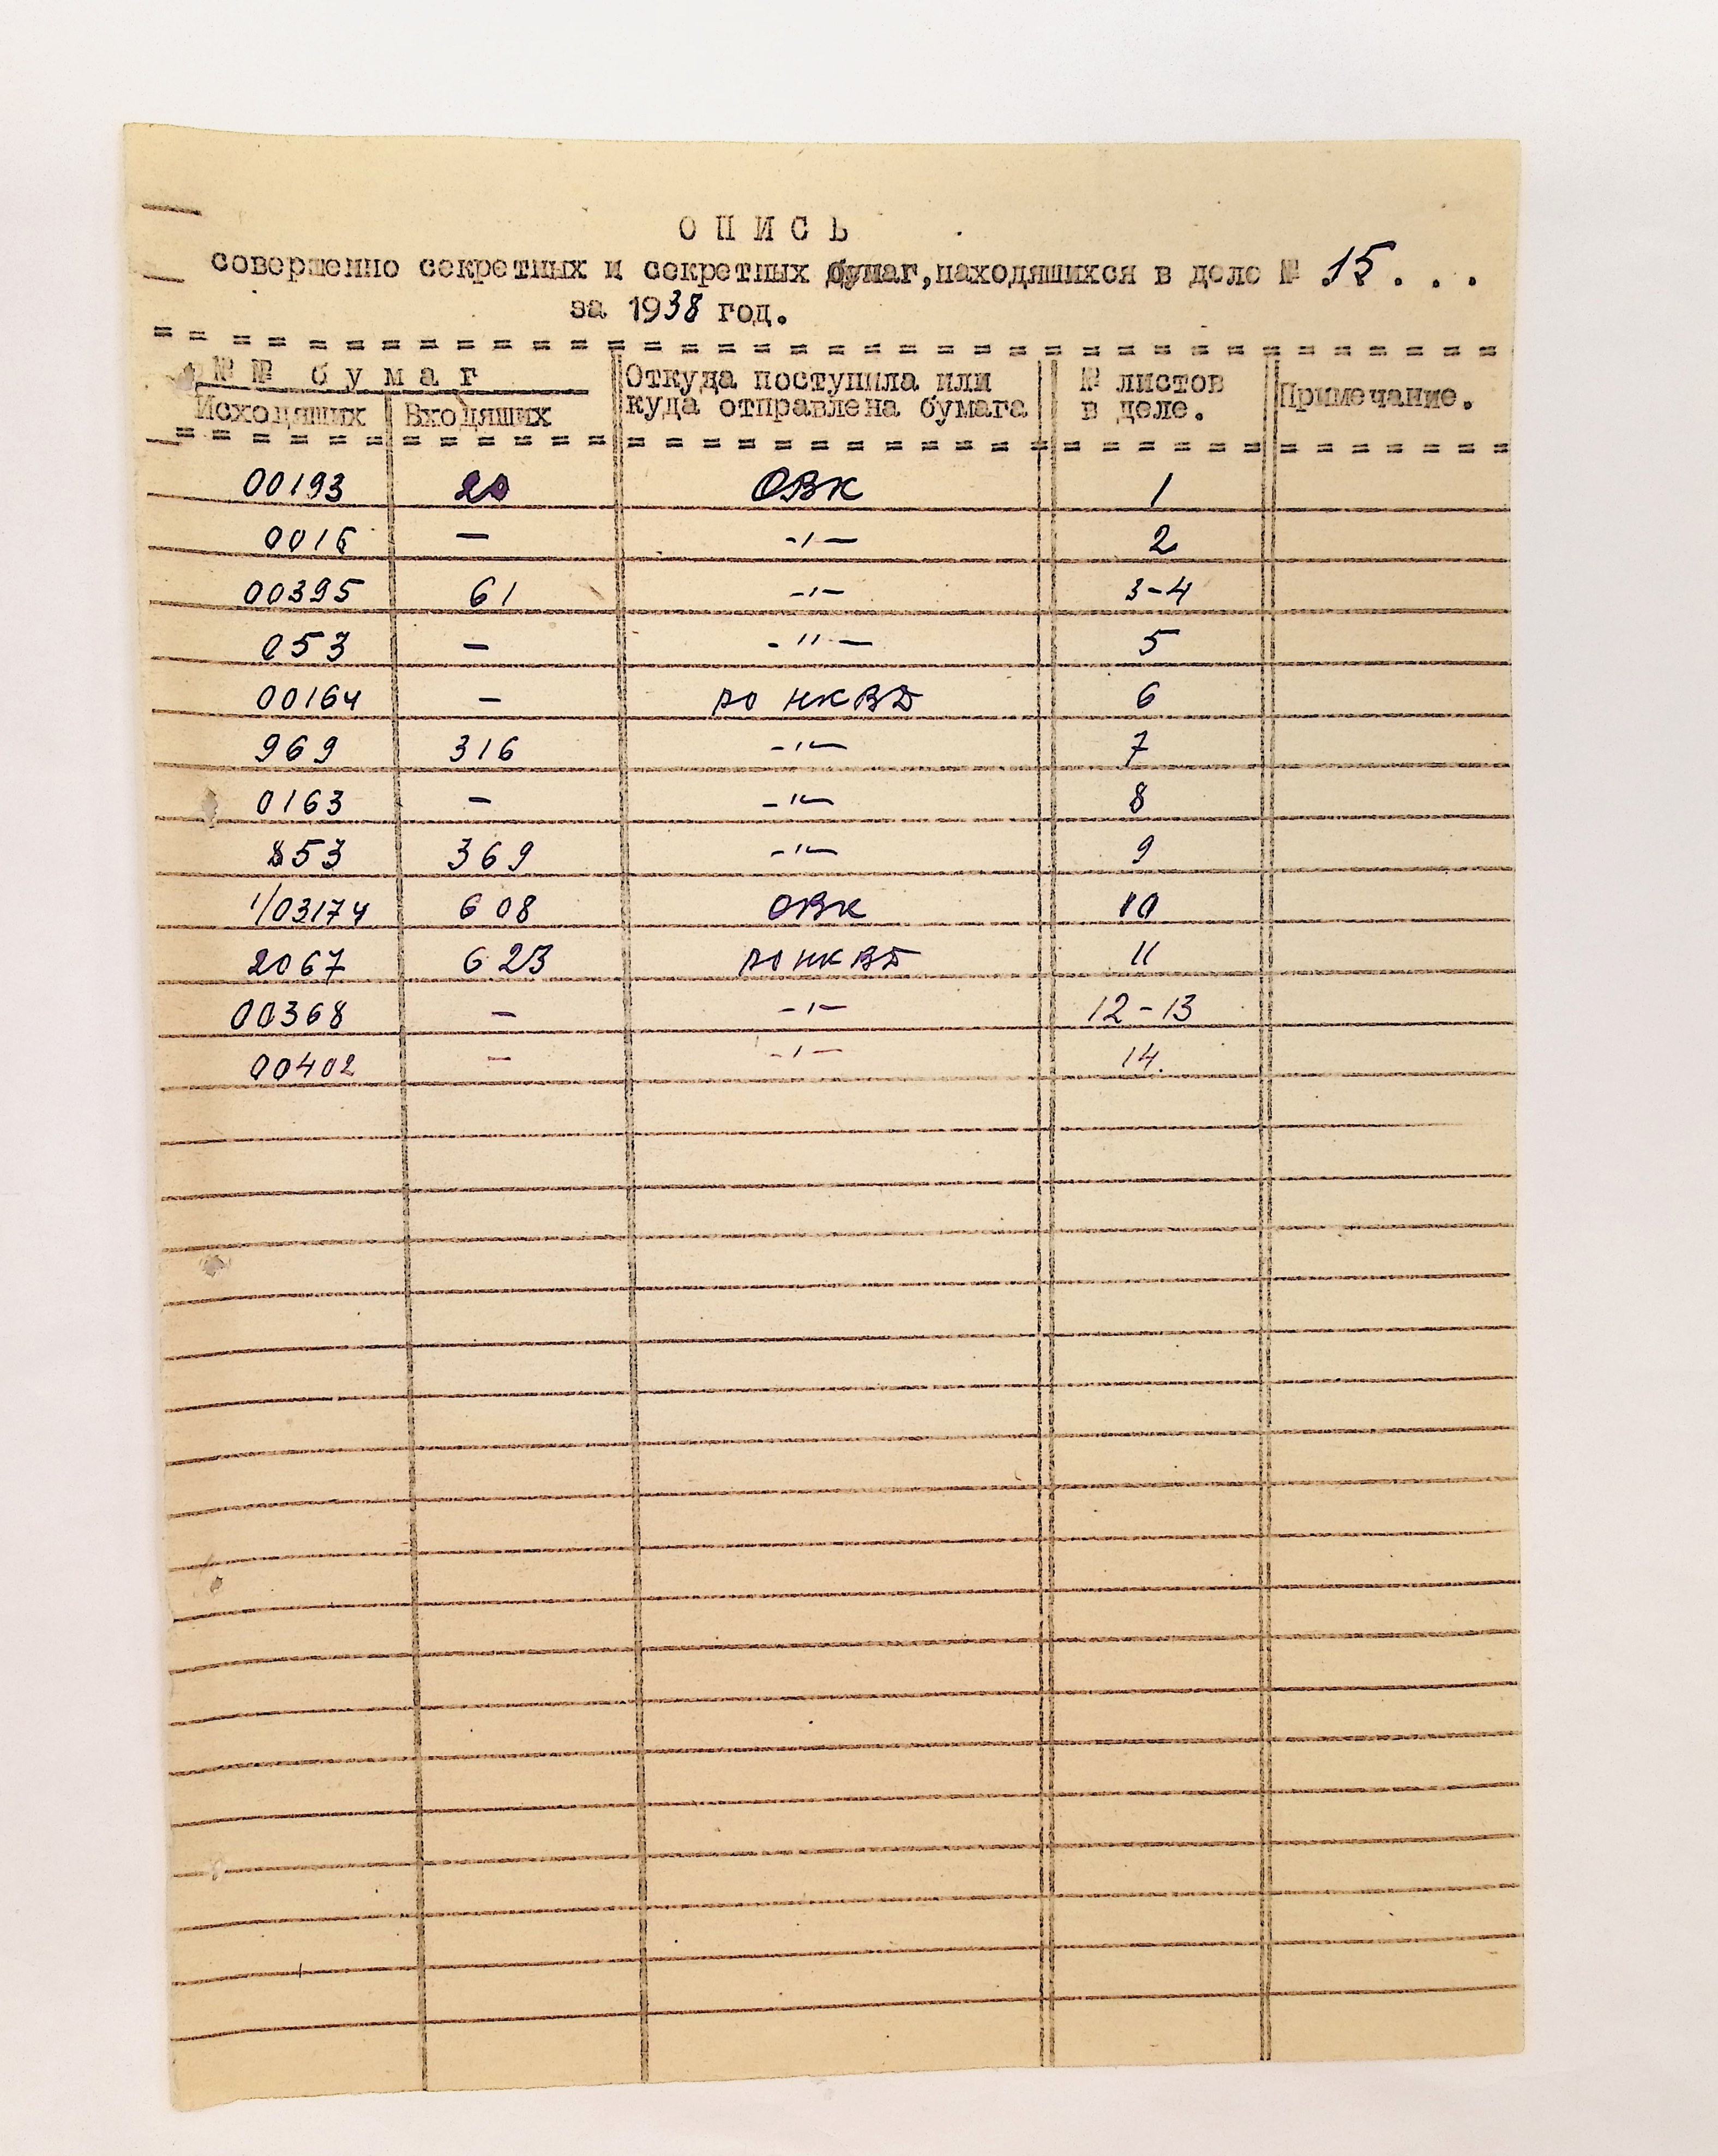 ОПИСЬ
совершенно секретных и секретных бумаг, находящихся в деле № 15...
за 1938 год.
№№ бумаг Откуда поступила или № листов Примечание.
Исходящих Входящих куда отправлена бумага в деле.
00193 20 ОВК 1
0016 — -"- 2
00395 61 -"- 3-4
053 — -"- 5
00164 — РО НКВД 6
969 316 -"- 7
0163 — -"- 8
853 369 -"- 9
1/03174 608 ОВК 10
2067 623 РО НКВД 11
00368 — -"- 12-13
00402 — -"- 14.